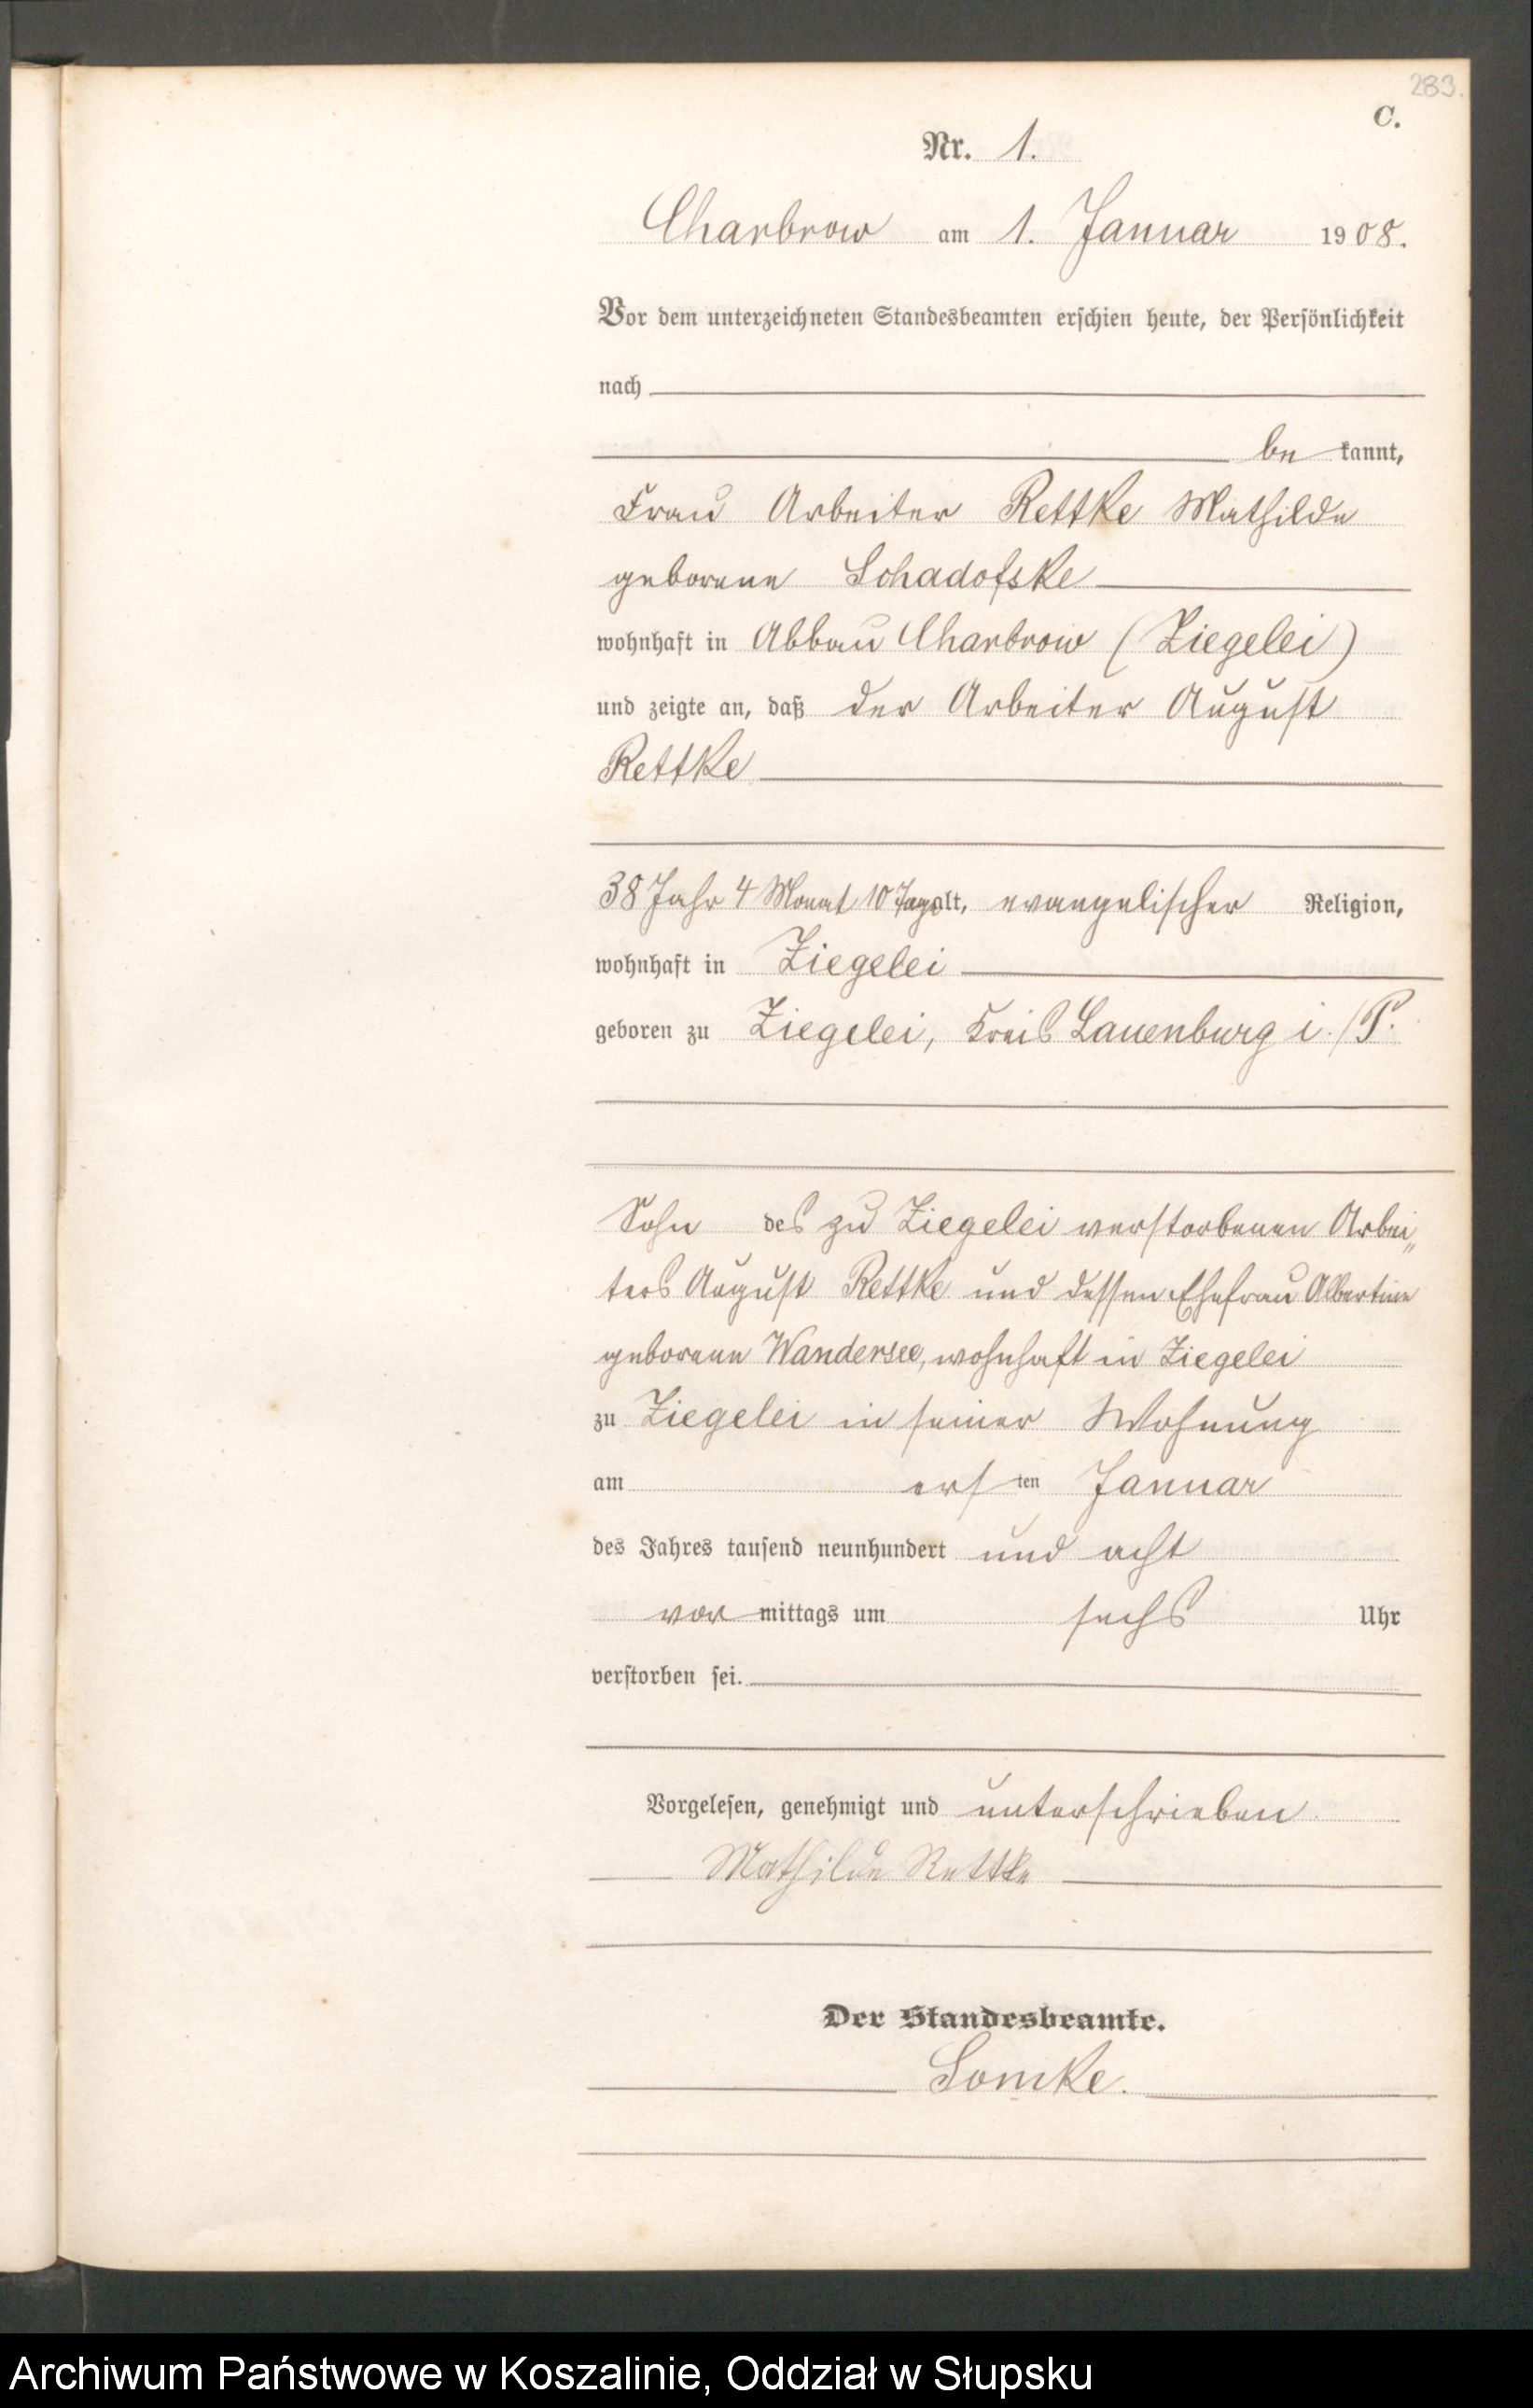 283.
C.
Nr. 1.
Charbrow am 1. Januar 1908.
Vor dem unterzeichneten Standesbeamten erschien heute, der Persönlichkeit
nach
be kannt,
Frau Arbeiter Rettke Mathilde
geborene Schadofske
wohnhaft in Abbau Charbrow (Ziegelei)
und zeigte an, daß der Arbeiter August
Rettke
38 Jahr 4 Monat 10 Tag alt, evangelischer Religion,
wohnhaft in Ziegelei
geboren zu Ziegelei, Kreis Lauenburg i./P.
Sohn des zu Ziegelei verstorbenen Arbei„
ters August Rettke und dessen Ehefrau Albertine
geborene Wandersee, wohnhaft in Ziegelei
zu Ziegelei in seiner Wohnung
am ersten Januar
des Jahres tausend neunhundert und acht
vor mittags um sechs Uhr
verstorben sei.
Vorgelesen, genehmigt und unterschrieben.
Mathilde Rettke
Der Standesbeamte.
Lomke.
Archiwum Państwowe w Koszalinie, Oddział w Słupsku